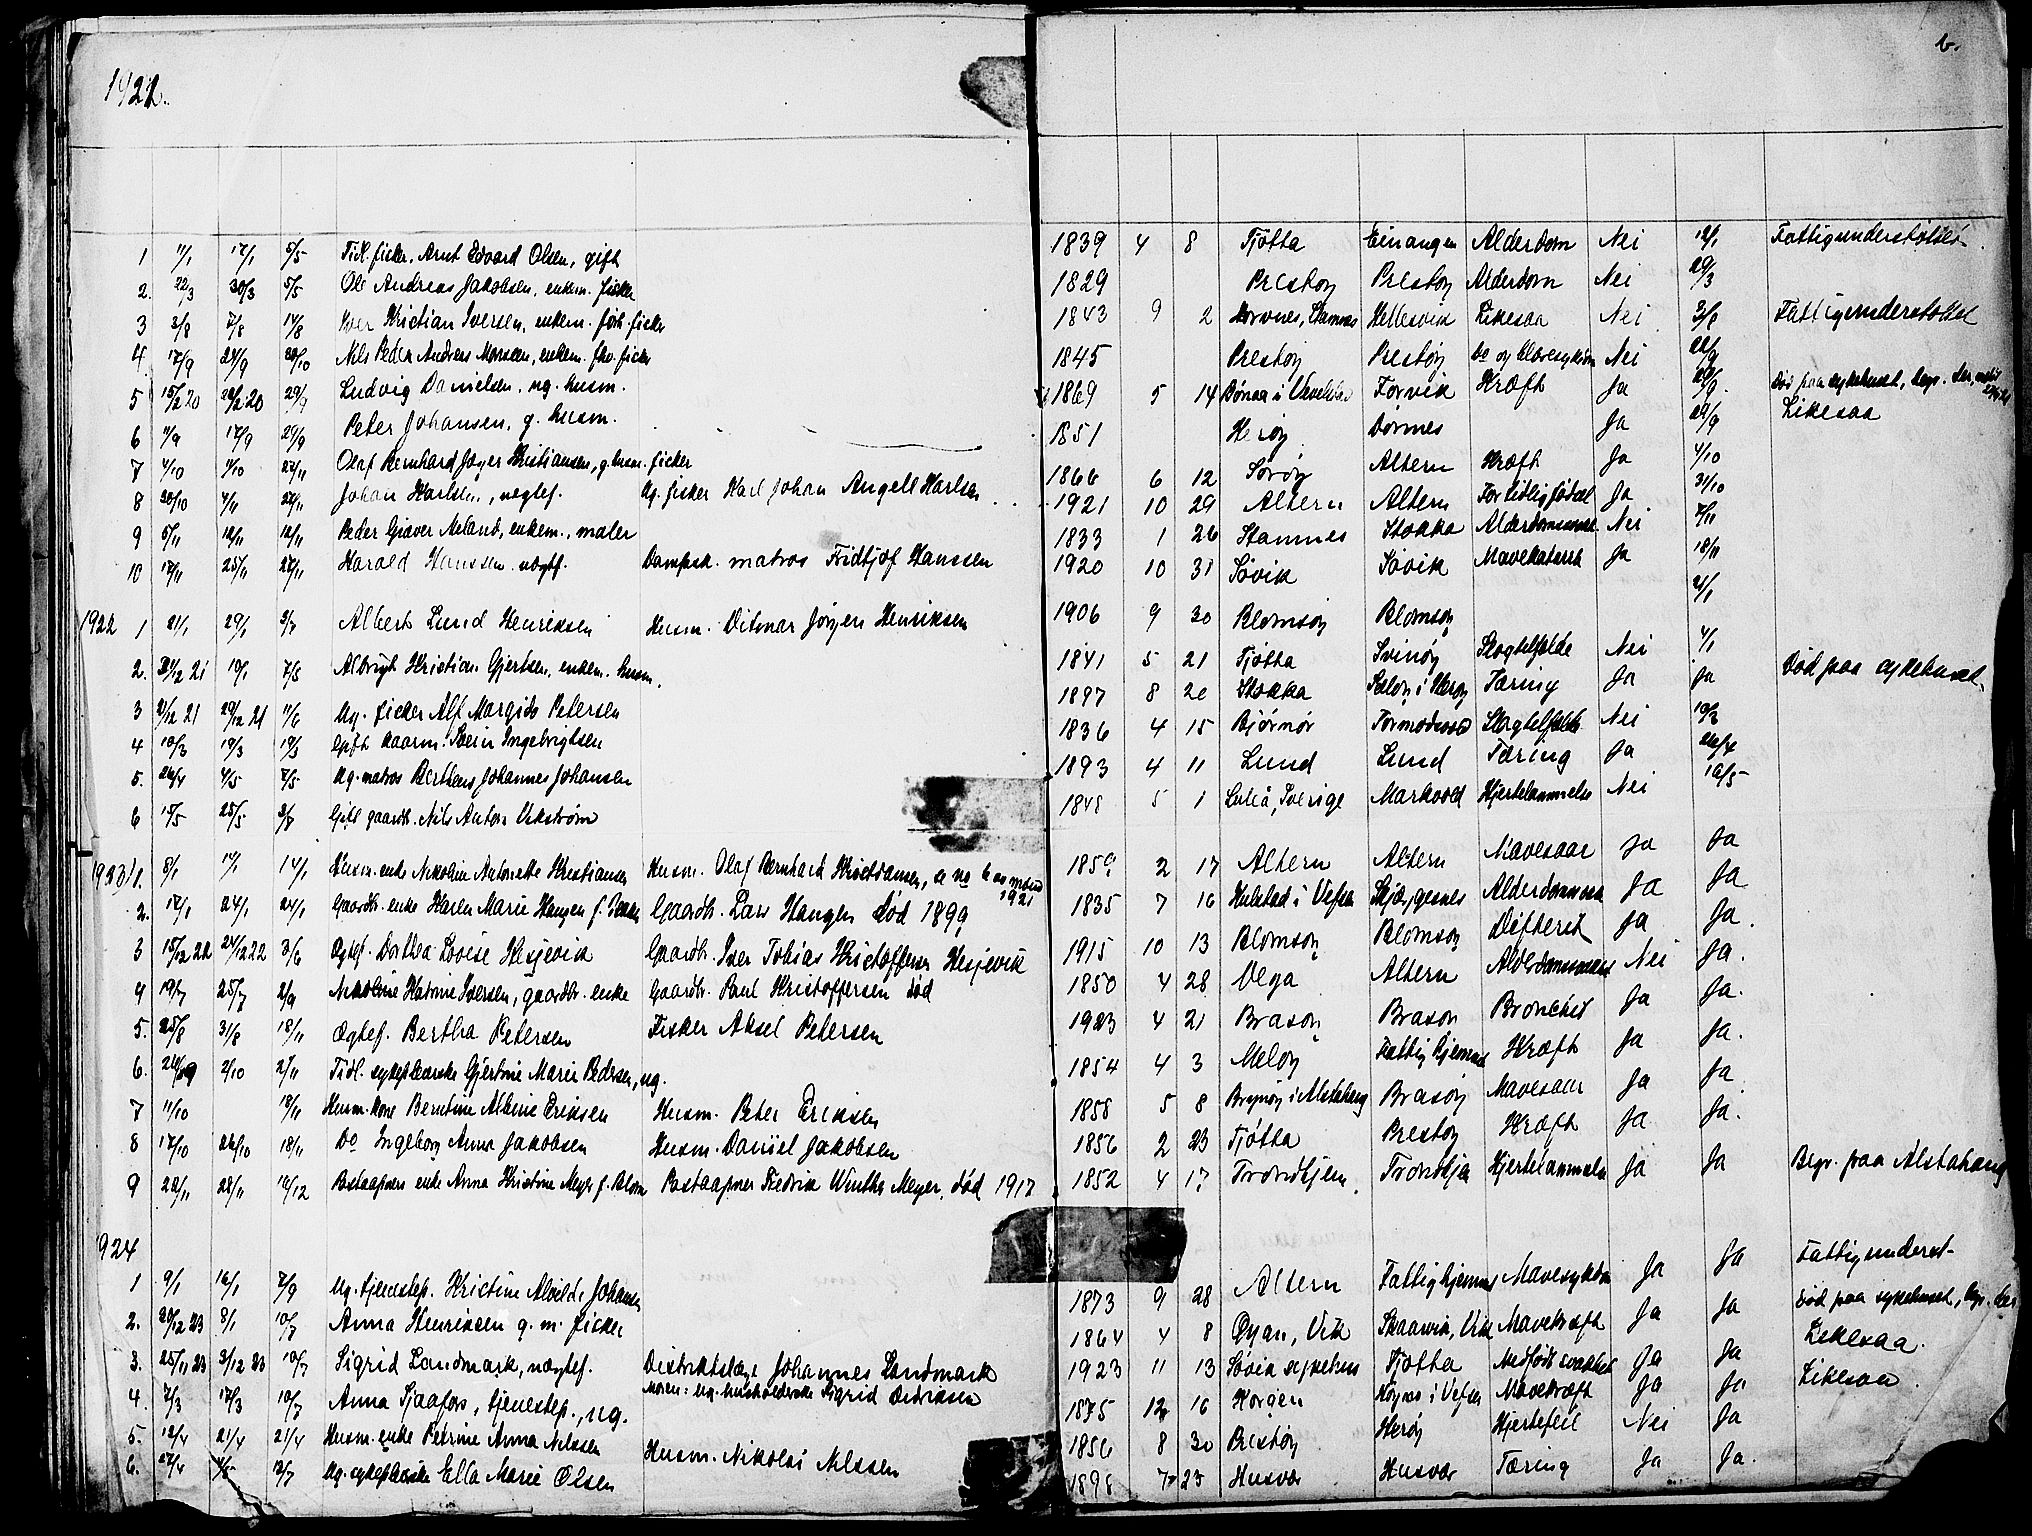 1921.
6.
1 11/1 17/1 5/5 Tidl. fisker. Arnt Edvard Olsen, gift 1839 4 8 Tjøtta Einangen Alderdom Nei 12/1 Fattigunderstøttet
2. 22/3 30/3 5/5 Ole Andreas Jakobsen, enkem. fisker 1829 Prestøy Prestøy Alderdom Nei 29/3
3 3/8 7/8 14/8 Iver Kristian Iversen, enkem. fhv. fisker 1843 9 2 Stamnes Hellesvik Likesaa Nei 3/8 Fattigunderstøttet
4 17/9 24/9 Nils Peder Andreas enkem. fhv. fisker 1845 Prestøy Prestøy Do og Nei
5 15/2 20 20 29/9 Ludvig Danielsen, ug. husm. 1869 5 14 Dønna i Vevelstad Forvik Kræft Ja Død paa sykehuset, begr.
6 11/9 17/9 29/9 Peter Johansen, g. husm. 1851 Herøy Dønnes Ja Likesaa
7 4/10 27/11 Olaf Bernhard Kristiansen, g. husm. fisker 1866 6 12 Sørøy Altern Kræft Ja 4/10
8 30/10 4/11 27/11 Johan Karlsen, uegtef. Ug. fisker Karl Johan Angell Karlsen 1921 10 29 Altern Altern For tidlig fødsel Ja 31/10
9 5/11 12/11 12/11 Peder Græver Neland, enkem., maler 1833 1 26 Stamnes Stokka Nei 7/11
10 17/11 25/11 27/11 Harald Hanssen uegtf. Dampsk. matros Fridtjof Hanssen 1920 10 31 Søvik Søvik Mavekatarrh Ja 18/11
1922 1 21/1 29/1 2/7 Albert Lund Henriksen Husm. Ditmar Jørgen Henriksen 1906 9 30 Blomsøy Blomsøy 21/1
2. 31/12 21 19/1 7/5 Albrigt Kristian Gjertsen, enkem. husm. 1841 5 21 Tjøtta Svinøy Slagtilfælde Nei 4/1
3 21/12 21 29/12 21 11/6 Ug. fisker Alf Margido Petersen 1897 8 20 Stokka i Herøy Tæring Ja Ja Død paa sykehuset.
4 10/3 19/3 19/3 Gift Sverin Ingebrigtsen 1836 4 15 Bjørnør Slagtilfælde Nei 10/3
5. 26/4 4/5 7/5 Ug. matros Berthens Johannes Johansen 1893 4 11 Lund Lund Tæring Ja 26/4
6 15/5 25/5 2/7 Gift gaardbr. Nils Anton Vikstrøm 1848 5 1 Luleå, Sverige Markvold Hjertelammelse Nei 16/5
1923 1. 8/1 14/1 14/1 Husm. enke Nikoline Antonette Kristiansen Husm. Olaf Bernhard Kristiansen, 1921 1859 2 17 Altern Altern Mavesaar Ja Ja
2. 17/1 24/1 24/1 Gaardbr. enke Karen Marie Haugen f. Gaardbr. Lars Haugen død 1899 1835 7 16 Hulstad i Vefsn Ja Ja
3 15/12 22 24/12 22 3/6 Egtef. Dorthea Lovise Hesjevik Gaardbr. Iver Tobias Kristoffersen Hesjevik 1915 10 13 Blomsøy Blomsøy Difterit Ja Ja.
4 19/7 25/7 2/9 Nikoline Katrine Iversen, gaardbr. enke Gaardbr. Paul Kristoffersen død 1850 4 28 Vega Altern Nei Ja.
5. 25/8 31/8 18/11 Ægtef. Bertha Petersen Fisker Aksel Petersen 1923 4 21 Brasøy Brasøy Bronchit Ja Ja.
6. 2/10 2/11 Tidl. sykepleierske Gjertine Marie Pedersen, ug. 1854 4 3 Meløy Fattighjemmet Kræft Ja Ja.
7 11/10 18/11 Husm. kone Berntine Albine Eriksen Husm. Peter Eriksen 1858 5 8 i Alstahaug Brasøy Mavesaar Ja Ja
8 17/10 26/10 18/11 Do Ingeborg Anna Jakobsen Husm. Daniel Jakobsen 1856 2 23 Tjøtta Prestøy Kræft Ja Ja.
9 20/11 28/11 16/12 Postaapner enke Anna Kristine Meyer f. Blom Postaapner Fredrik Winther Meyer, død 1917 1852 4 17 Trondhjem Trondhjem Hjertelammelse Ja Ja Begr. paa Alstahaug
1924
1 9/1 16/1 7/9 Ug. tjenestep. Kristine Alvilde Johansen 1873 9 28 Altern Fattighjemmet Mavesykdom Ja Ja Fattigunderst-
2. 30/12 23 8/1 10/7 Anna Henriksen g. m. fisker 1864 4 8 Øyan, Vik Skaanvik, Vik Mavekræft Ja Ja Død paa sykehuset, begr. her
3. 25/11 23 3/12 23 10/7 Sigrid Landmark, uægtef. Distriktslæge Johannes Landmark
Moren: ug. husholderske Sigrid Didriksen 1923 11 13 Søvik sykehus Tjøtta Medfødt svakhet Ja Ja Likesaa.
4. 7/3 17/3 10/7 Anna Sjaafors, tjenestep., ug. 1875 12 16 Horgen i Vefsn Mavekræft Ja Ja Likesaa.
5. 12/4 21/4 21/4 Husm. enke Petrine Anna Nilssen Husm. Nikolai Nilssen 1856 8 30 Prestøy Herøy Hjertefeil Nei Ja
6. 27/4 13/7 Ug. sykepleierske Ella Marie Olsen 1898 7 23 Husvær Husvær Tæring Ja Ja.